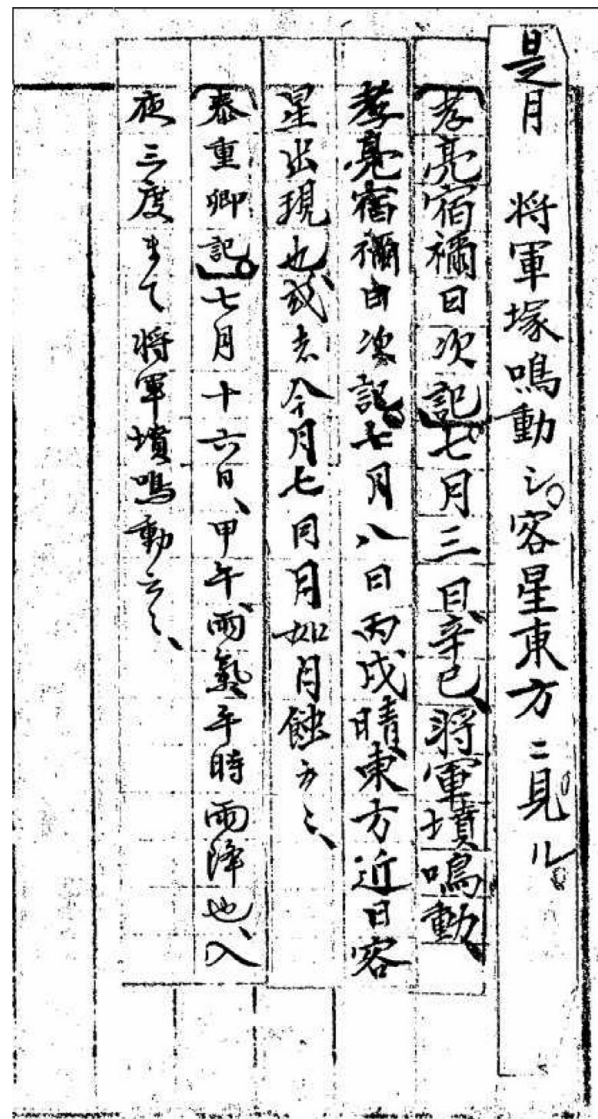 是月　将軍塚鳴動シ。客星東方ニ見ル。
〔孝亮宿禰日次記〕七月三日、辛巳、将軍墳鳴動、
孝亮宿禰日次記。七月八日丙戌晴、東方近日客
星出現也、或者今月七日月如月蝕云々、
〔泰重卿記〕七月十六日、甲午、雨気、午時雨降也、入
夜三度まて将軍墳鳴動云々、